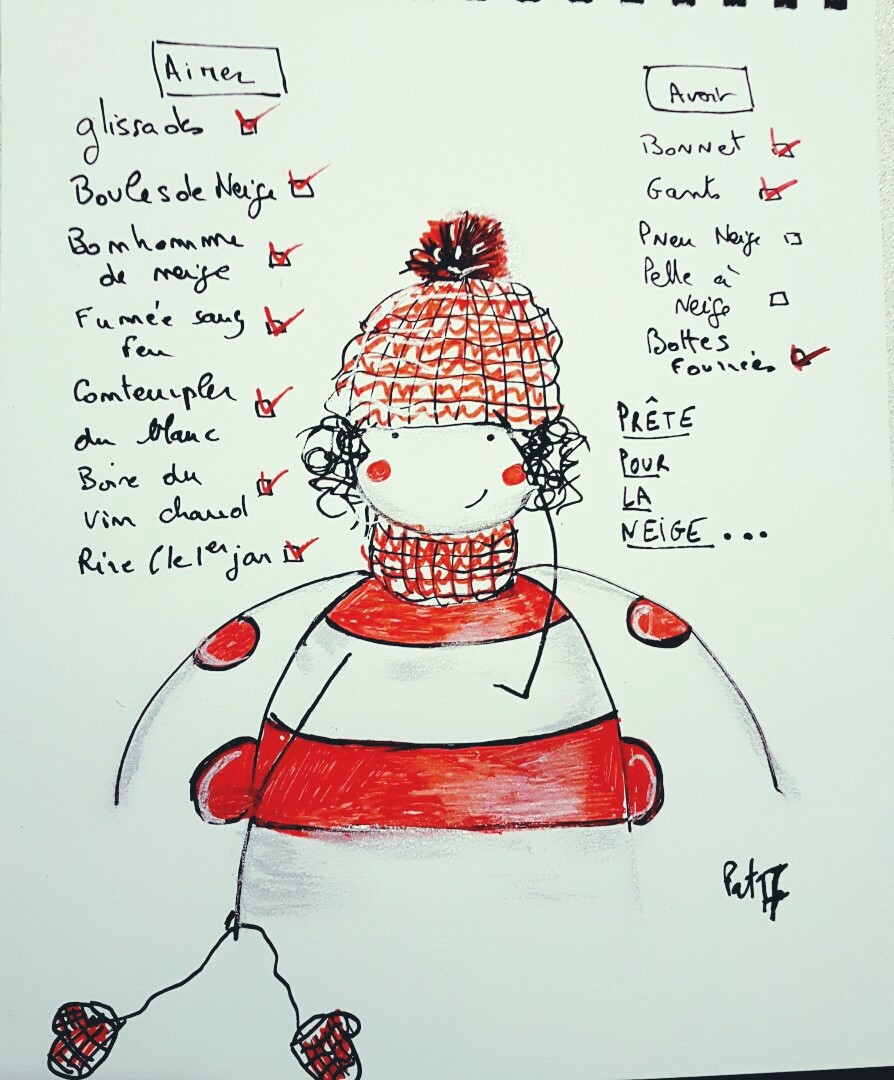 Aimer
glissades
Boules de Neige
Bonhomme
de neige
Fumée sans
feu
Contempler
du blanc
Boire du
vin chaud
Rire (le 1er jan
Avoir
Bonnet
Gants
Pneu Neige
Pelle à
Neige
Bottes
Fourrées
PRÊTE
POUR
LA
NEIGE...
Pat